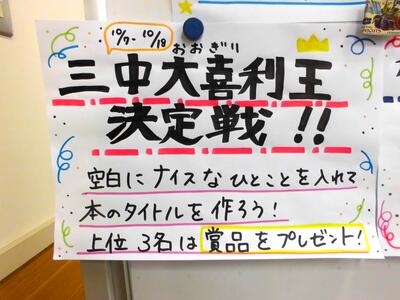 10/7-10/18
おおぎり
三中大喜利王
決定戦!!
空白にナイスなひとことを入れて
本のタイトルを作ろう!
上位3名は賞品をプレゼント!